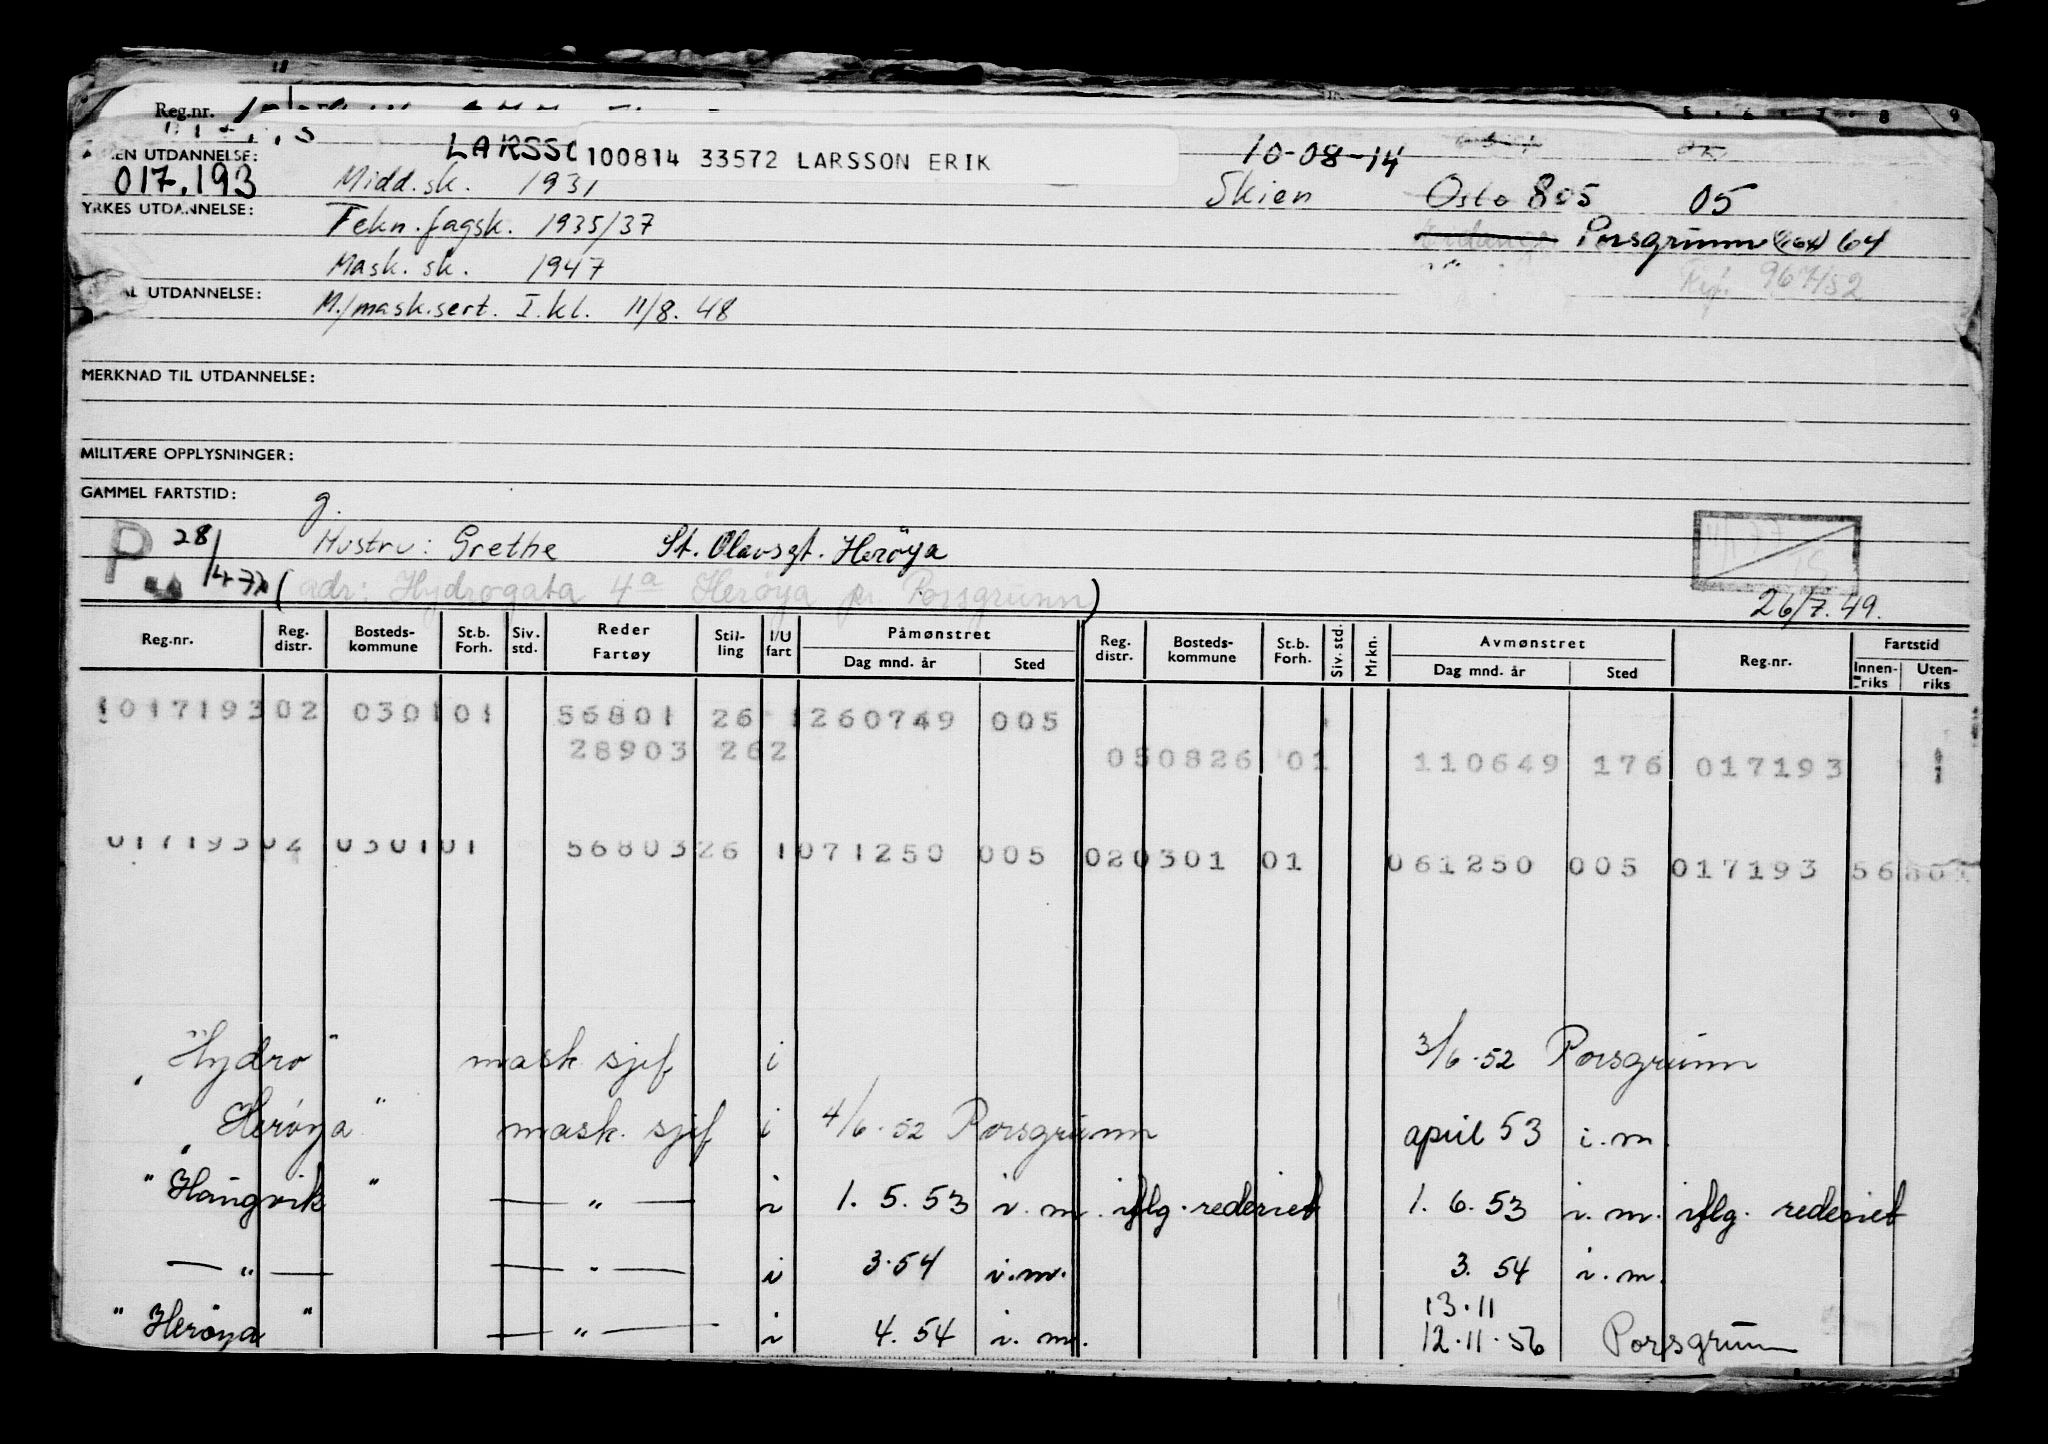 Reg.nr.
LARSSO 100814 33572 LARSSON ERIK 10-08-14
EN UTDANNELSE:
017.193 Midd.sk. 1931 Skien Oslo 805 05
YRKES UTDANNELSE: Tekn. fagsk. 1935/37 Porsgrunn (164) 64
Mask. sk. 1947 96 H/52
AL UTDANNELSE: M./mask.sert. I.kl. 11/8. 48
MERKNAD TIL UTDANNELSE:
MILITÆRE OPPLYSNINGER:
GAMMEL FARTSTID: g.
P 28/4-77 Hustru: Grethe St. Olavsgt. Herøya
(adr: Hydrogata 4a Herøya pr. Porsgrunn)
26/7.49.
Reg.nr. Reg. distr. Bosteds-kommune St.b. Forh. Siv. std. Reder Fartøy Stil-ling I/U fart Påmønstret Dag mnd. år Sted Reg. distr. Bosteds-kommune St.b. Forh. Siv. std. Mrkn. Avmønstret Dag mnd. år Sted Reg.nr. Fartstid Innen-riks Uten-riks
1017193 02 0301 01 56801 26 1 260749 005
28903 26 2 05 0826 01 110649 176 017193
017193 02 0301 01 56803 26 1 071250 005 02 0301 01 061250 005 017193 56803
"Hydro" mask sjef i 3/6-52 Porsgrunn
"Herøya" mask. sjef i 4/6-52 Porsgrunn april 53 i.m.
"Haugvik" — " — i 1. 5. 53 i. m. iflg. rederiet 1. 6. 53 i. m. iflg. rederiet
— " — — " — i 3.54 i.m. 3. 54 i. m.
13.11
"Herøya" — " — i 4. 54 i. m. 12.11.56 Porsgrunn